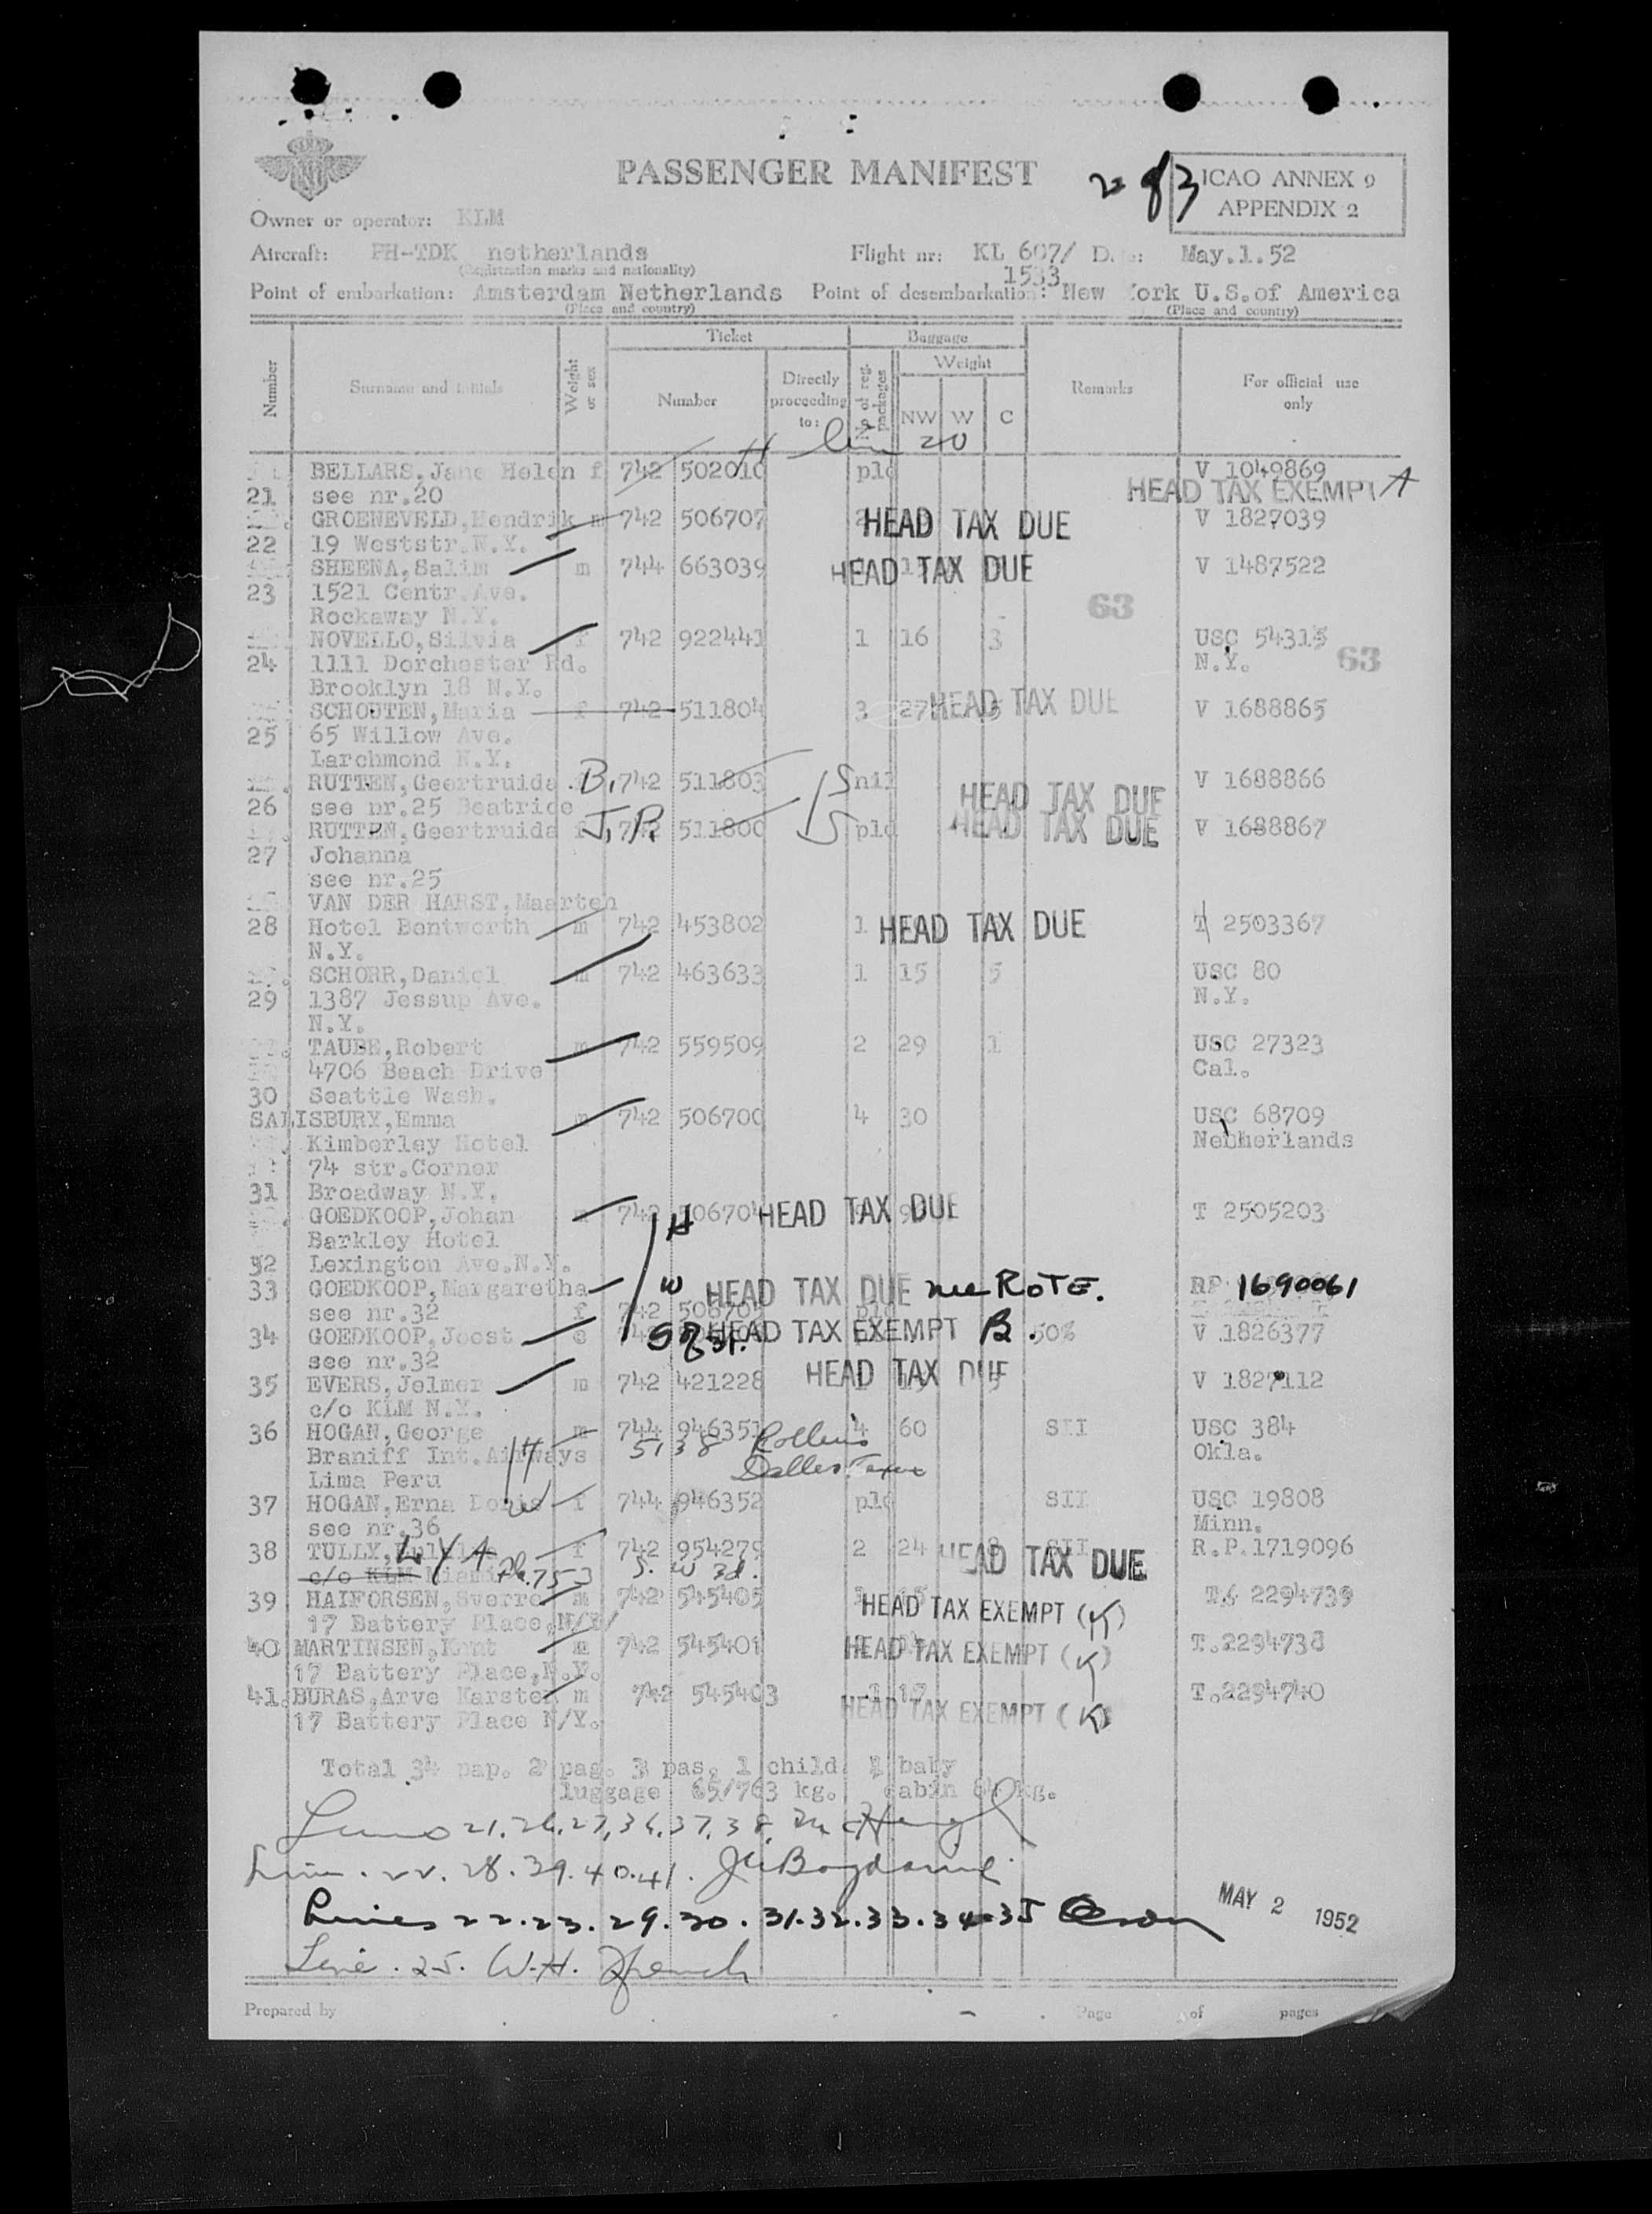 PASSENGER MANIFEST
283
ICAO ANNEX 9
APPENDIX 2
Owner or operator: KLM
Aircraft: PH-TDK netherlands Flight nr: KL 607/ May.1.52
(Registration marks and nationality) 1533
Point of embarkation: Amsterdam Netherlands Point of desembarkation: New York U.S.of America
(Place and country) (Place and country)
Ticket Baggage
Number Surname and initials Weight or sex Number Directly proceeding to: No of reg. packages Weight NW W C Remarks For official use only
20
BELLARS,Jane Helen f 742 502010 plc V 1049869
HEAD TAX EXEMPT A
21 see nr.20
GROENEVELD,Hendrik m 742 506707 HEAD TAX DUE V 1827039
22 19 Weststr.N.Y.
SHEENA,Salim m 744 663039 HEAD TAX DUE V 1487522
23 1521 Centr.Ave.
63
Rockaway N.Y.
NOVELLO,Silvia f 742 922441 1 16 3 USC 54315
24 1111 Dorchester Rd. N.Y. 63
Brooklyn 18 N.Y.
SCHOUTEN,Maria f 742 511804 3 27 HEAD TAX DUE V 1688865
25 65 Willow Ave.
Larchmond N.Y.
RUTTEN,Geertruida B. 742 511803 nil HEAD TAX DUE V 1688866
26 see nr.25 Beatrice
RUTTEN,Geertruida f 742 511800 plc HEAD TAX DUE V 1688867
27 Johanna
see nr.25
VAN DER HARST,Maarten
28 Hotel Bentworth m 742 453802 1 HEAD TAX DUE T 2503367
N.Y.
SCHORR,Daniel m 742 463633 1 15 5 USC 80
29 1387 Jessup Ave. N.Y.
N.Y.
TAUBE,Robert m 742 559509 2 29 1 USC 27323
4706 Beach Drive Cal.
30 Seattle Wash.
SALISBURY,Emma m 742 506700 4 30 USC 68709
Kimberley Hotel Netherlands
74 str.Corner
31 Broadway N.Y.
GOEDKOOP,Johan m 742 506704 H HEAD TAX DUE T 2505203
Barkley Hotel
32 Lexington Ave.N.Y.
33 GOEDKOOP,Margaretha W HEAD TAX DUE nee ROTE. RP 1690061
see nr.32 f 742 506705 plc
34 GOEDKOOP,Joost HEAD TAX EXEMPT B. 50% V 1826377
see nr.32
35 EVERS,Jelmer m 742 421228 HEAD TAX DUE V 1827112
c/o KLM N.Y.
36 HOGAN,George m 744 946351 4 60 SII USC 384
Braniff Int.Airways H 5138 Rollins Okla.
Lima Peru Dallas Texas
37 HOGAN,Erna Doris f 744 946352 plc SII USC 19808
see nr.36 W Minn.
38 TULLY, LYA f 742 954279 2 24 SII HEAD TAX DUE R.P.1719096
c/o KLM Miami 753 S. W 3d.
39 HAIFORSEN,Sverre m 742 545405 HEAD TAX EXEMPT (K) T. 2294739
17 Battery Place,N/Y/
40 MARTINSEN,Knut m 742 545401 HEAD TAX EXEMPT (K) T.2294738
17 Battery Place,N.Y.
41. BURAS,Arve Karsten m 742 545403 1 17 T.2294740
HEAD TAX EXEMPT (K)
17 Battery Place N/Y.
Total 34 pap. 2 pag. 3 pas, 1 child. 1 baby
luggage 65/763 kg. cabin kg.
21.26.27,36.37.38
28.39.40.41.
Lines 22.23.29.30.31.32.33.34-35 Olson
MAY 2 1952
Line. 25. W.H. French
Prepared by Page of pages